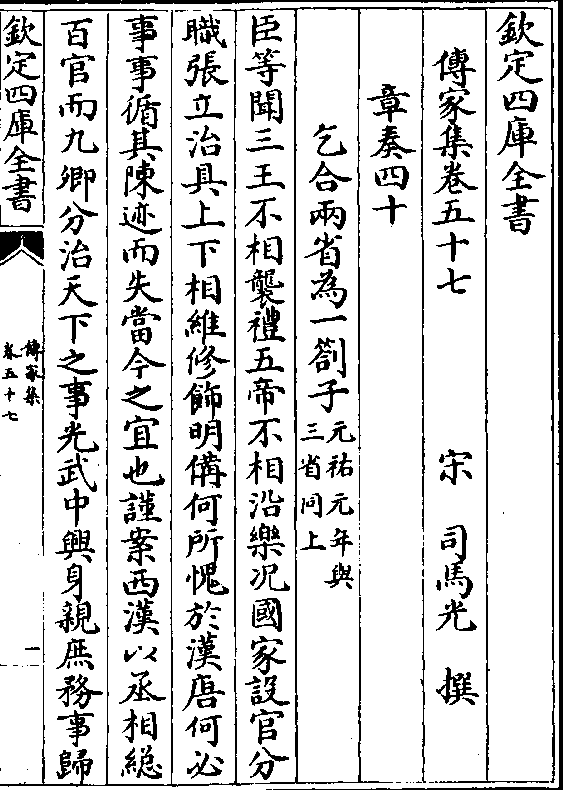 欽定四庫全書
傳家集卷五十七
宋 司馬光 撰
章奏四十
乞合兩省為一劄子元祐元年與
三省同上
臣等聞三王不相襲禮五帝不相沿樂况國家設官分
職張立治具上下相維修飾明備何所愧於漢唐何必
事事循其陳迹而失當今之宜也謹案西漢以丞相總
百官而九卿分治天下之事光武中興身親庶務事歸
欽定四庫全書
傳家集
卷五十七
一